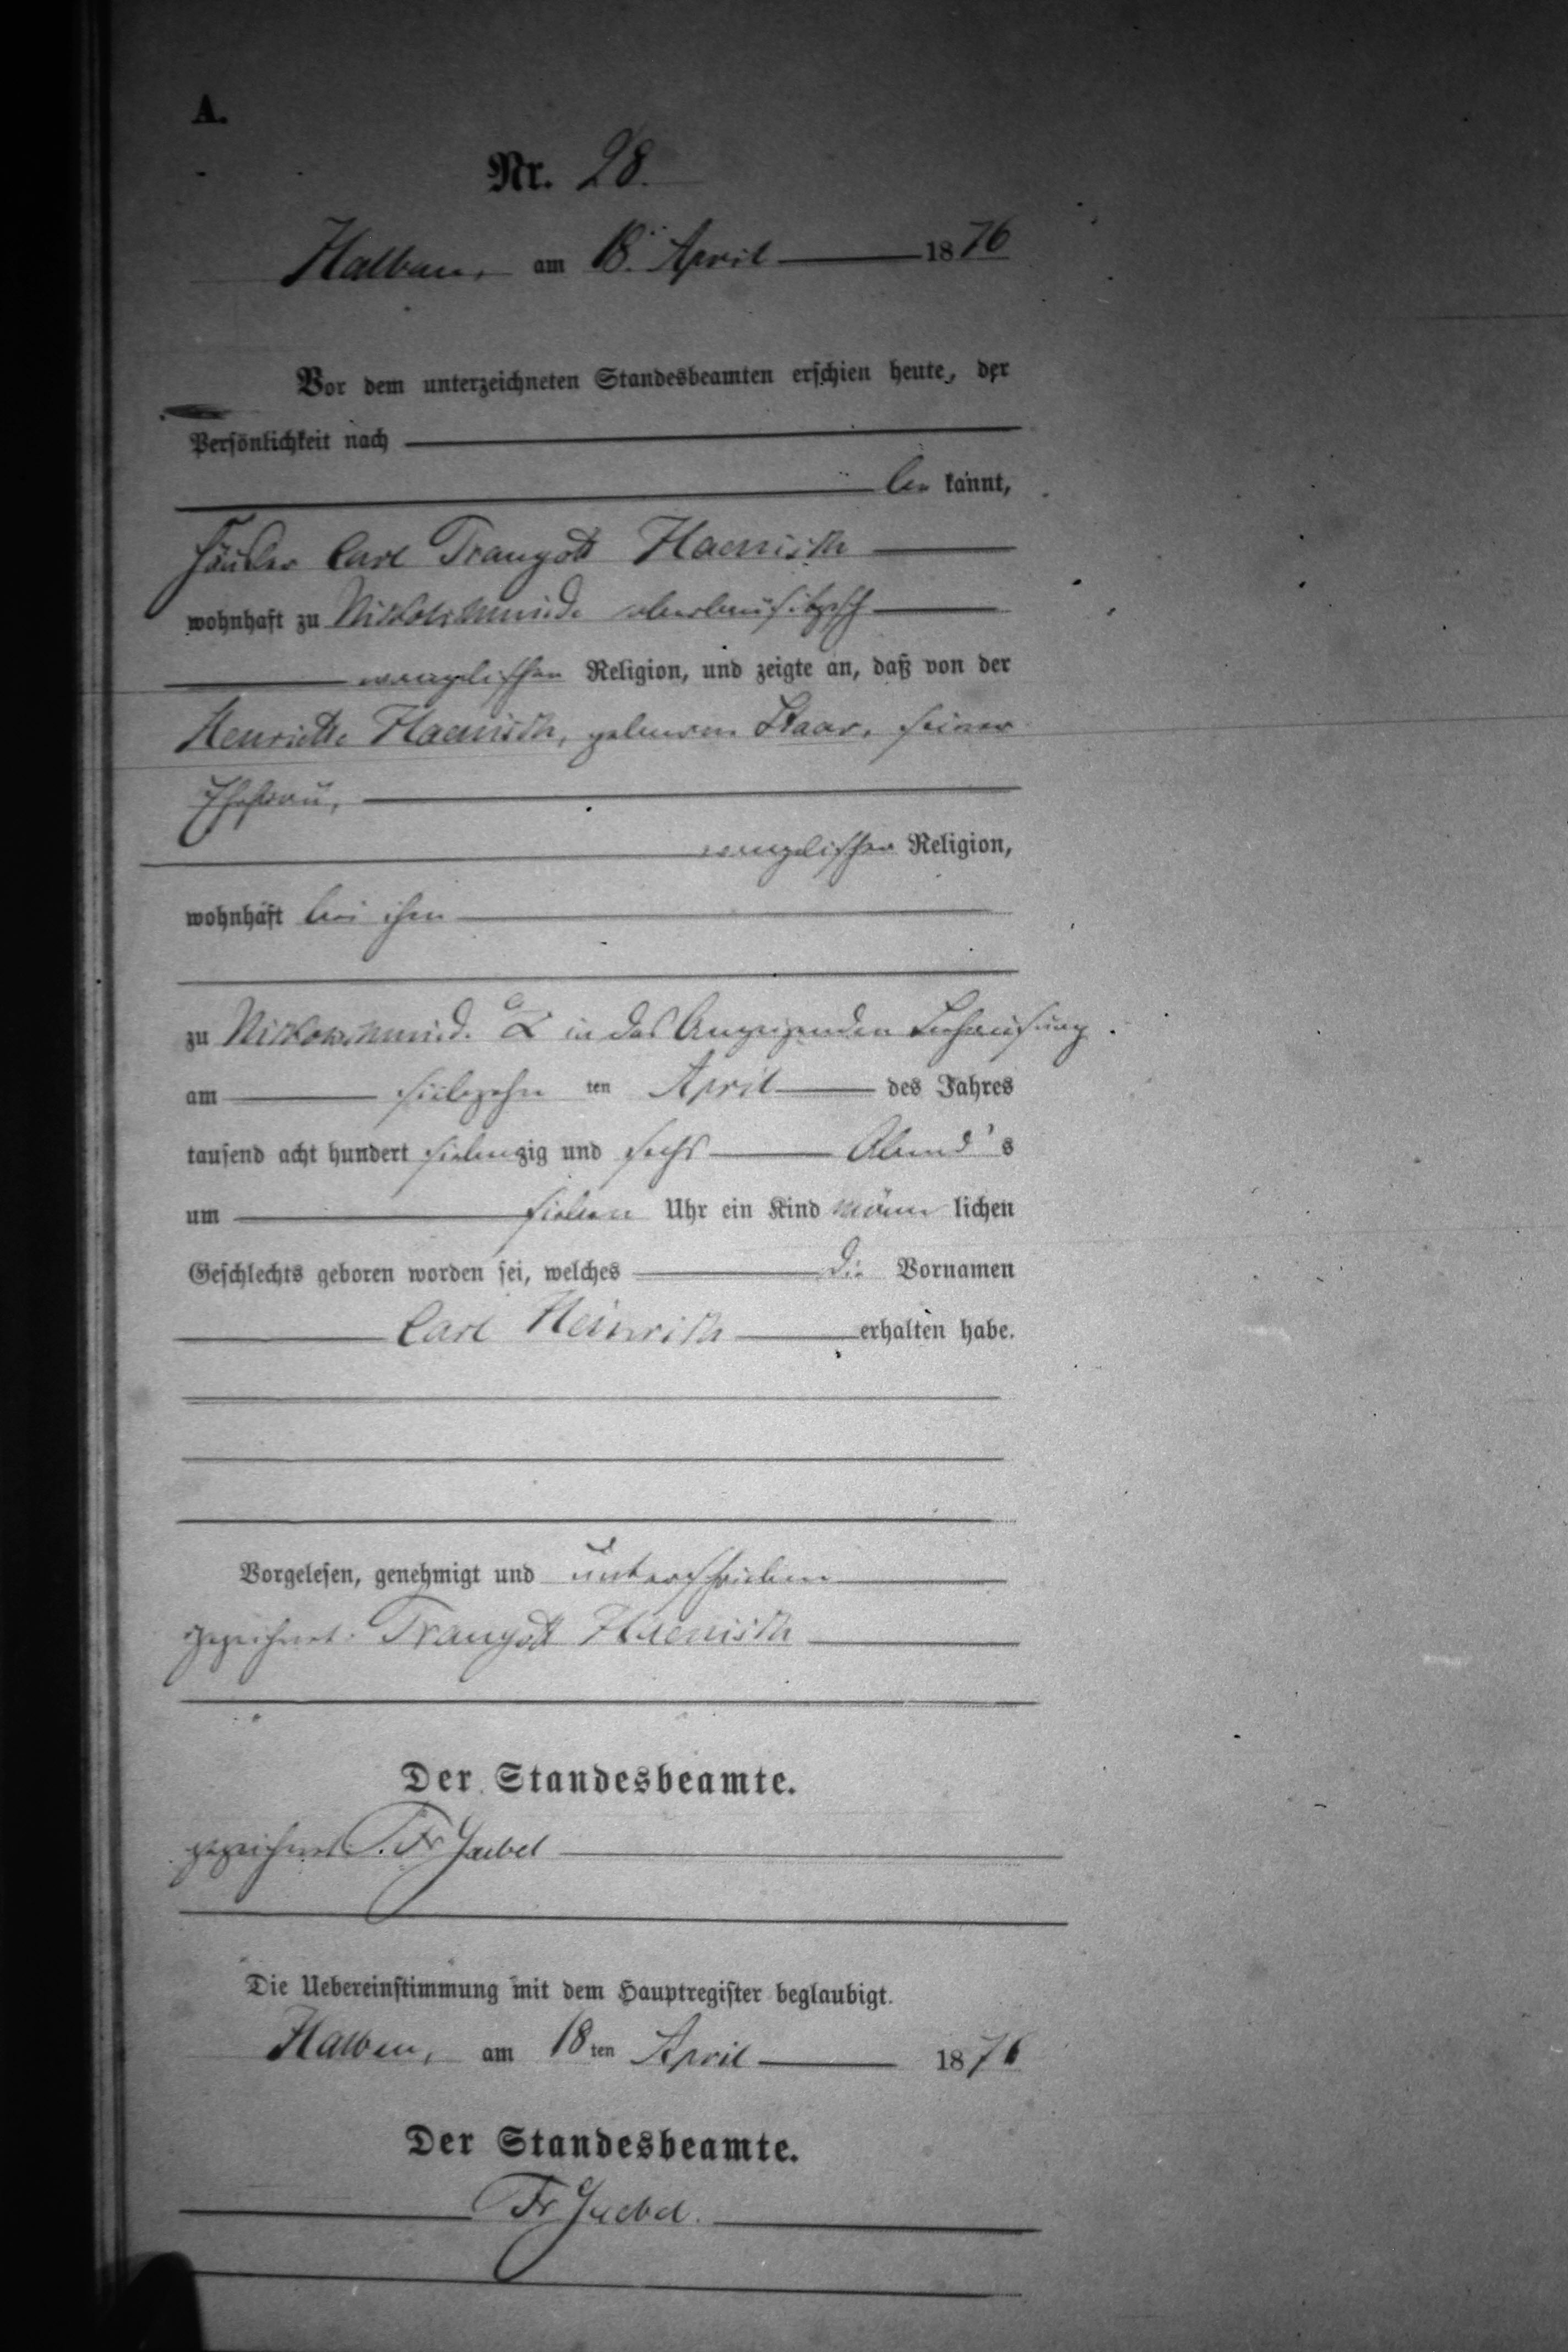 A.
Nr. 28.
Halbau, am 18. April 1876
Vor dem unterzeichneten Standesbeamten erschien heute, der
Persönlichkeit nach
be kannt,
Häusler Carl Traugott Haenisch
wohnhaft zu oberlausitzisch
evangelischer Religion, und zeigte an, daß von der
Henriette Haenisch, geborene Staar, seiner
Ehefrau,
evangelischer Religion,
wohnhaft bei ihm
zu in des Anzeigenden Behausung
am siebzehn ten April des Jahres
tausend acht hundert siebenzig und sechs Abend's
um sieben Uhr ein Kind männ lichen
Geschlechts geboren worden sei, welches die Vornamen
Carl Heinrich erhalten habe.
Vorgelesen, genehmigt und unterschrieben
gezeichnet: Traugott Haenisch
Der Standesbeamte.
gezeichnet: Fr Jaebel
Die Uebereinstimmung mit dem Hauptregister beglaubigt.
Halbau, am 18 ten April 1876
Der Standesbeamte.
Fr Jaebel.